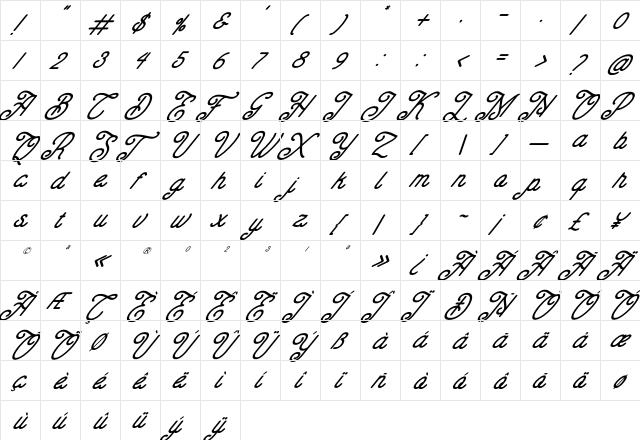 ! " # $ % & ' ( ) * + , - . / 0
1 2 3 4 5 6 7 8 9 : ; < = > ? @
A B C D E F G H I J K L M N O P
Q R S T U V W X Y Z [ | ] — a b
c d e f g h i j k l m n o p q r
s t u v w x y z [ | ] ~ ¡ ¢ £ ¥
© ª « ® ° ² ³ ¹ º » ¿ À Á Â Ã Ä
Å Æ Ç È É Ê Ë Ì Í Î Ï Ð Ñ Ò Ó Ô
Õ Ö Ø Ù Ú Û Ü Ý ß à á â ã ä å æ
ç è é ê ë ì í î ï ñ ò ó ô õ ö ø
ù ú û ü ý ÿ